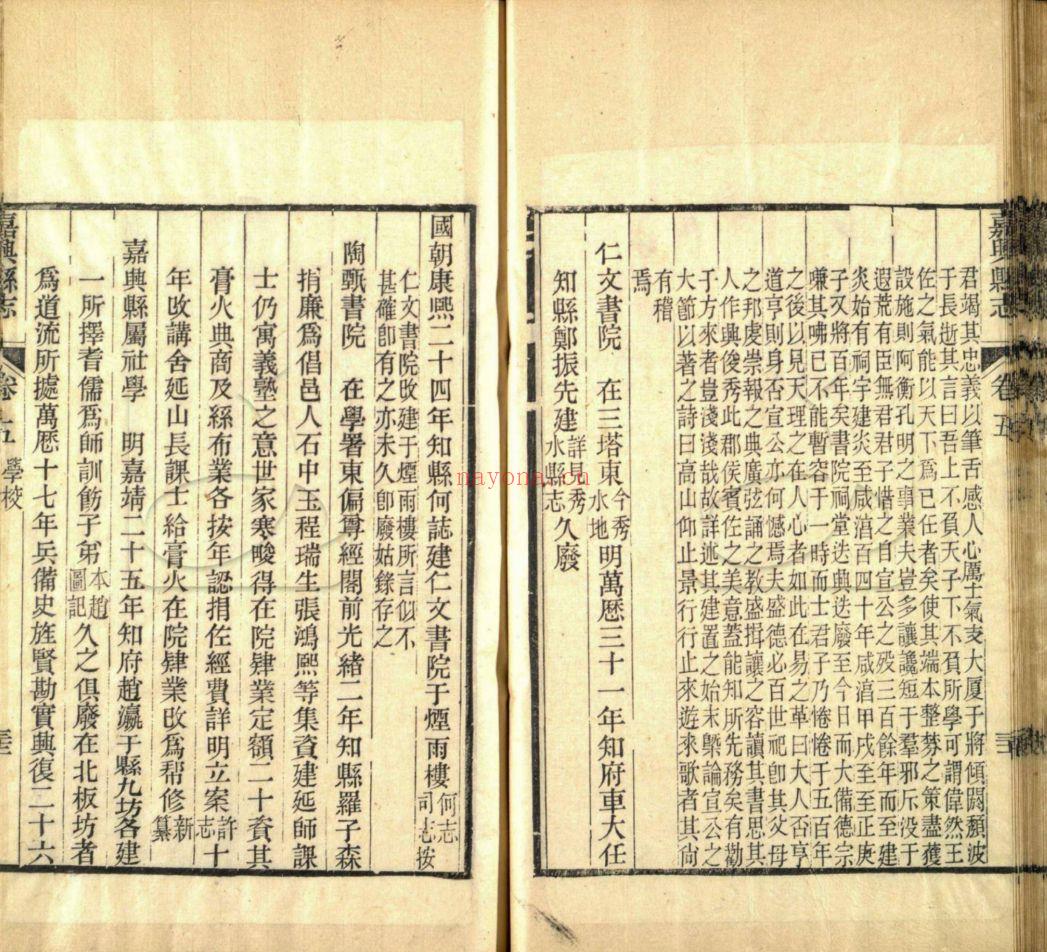 嘉興縣志 卷五
君竭其忠義以筆舌感人心厲士氣支大厦于將傾闢頽波
于長逝其言曰吾上不負天子下不負所學可謂偉然王
佐之氣能以天下爲已任者矣使其端本整勢之策盡獲
設施則阿衡孔明之事業夫豈多讓讒短于羣邪斥没于
遐荒有臣無君君子惜之自宣公之殁三百餘年而至建
炎始有祠宇建炎至咸淳百四十年咸淳甲戌至至正庚
子又將百年矣書院祠堂迭興迭廢至今日而大備德宗
嗛其咈已不能暫容于一時而士君子乃惓惓于五百年
之後以見天理之在人心者如此在易之革曰大人否亨
道亨則身否宣公亦何憾焉夫盛德必百世祀卽其父母
之邦虔崇報之典廣弦誦之教盛揖讓之容讀其書思其
人作興俊秀此郡侯賓佐之美意蓋能知所先務矣有勸
于方來者豈淺淺哉故詳述其建置之始末槩論宣公之
大節以著之詩曰高山仰止景行行止來遊來歌者其尚
有稽
焉
仁文書院 在三塔東今秀水地明萬歷三十一年知府車大任
知縣鄭振先建詳見秀水縣志久廢
國朝康熙二十四年知縣何誌建仁文書院于煙雨樓何志司志按
仁文書院改建于煙雨樓所言似不
甚確卽有之亦未久卽廢姑錄存之
陶甄書院 在學署東偏尊經閣前光緒二年知縣羅子森
捐廉爲倡邑人石中玉程瑞生張鴻熙等集資建延師課
士仍寓義塾之意世家寒畯得在院肄業定額二十賚其
膏火典商及絲布業各按年認捐佐經費詳明立案許志十
年改講舍延山長課士給膏火在院肄業改爲帮修新纂
嘉興縣屬社學 明嘉靖二十五年知府趙瀛于縣九坊各建
一所擇耆儒爲師訓飭子弟本趙圖記久之俱廢在北板坊者
爲道流所據萬歷十七年兵備史旌賢勘實興復二十六
嘉興縣志 卷五 學校
nayona.cn